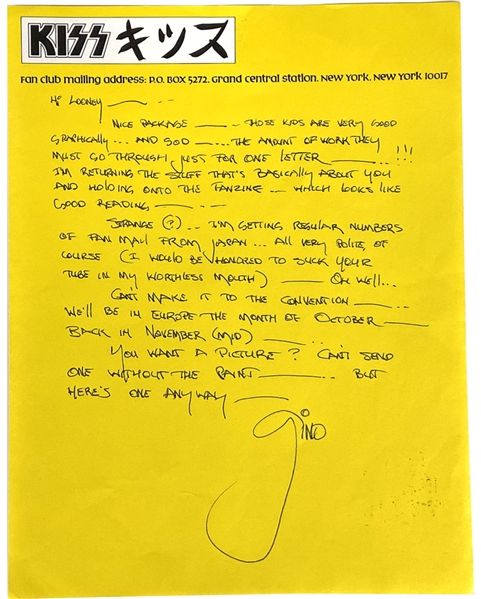 KISS キッス
Fan club mailing address: P.O. BOX 5272, Grand central station, New York, New York 10017
Hi LOONEY — — . .
NICE PACKAGE — .. THOSE KIDS ARE VERY GOOD
GRAPHICALLY ... AND GOD — .... THE AMOUNT OF WORK THEY
MUST GO THROUGH, JUST FOR ONE LETTER — ... !!!
I'M RETURNING THE STUFF THAT'S BASICALLY ABOUT YOU
AND HOLDING ONTO THE FANZINE — WHICH LOOKS LIKE
GOOD READING — — . . —
STRANGE (?) ... I'M GETTING REGULAR NUMBERS
OF FAN MAIL FROM JAPAN ... ALL VERY POLITE OF
COURSE (I WOULD BE HONORED TO SUCK YOUR
TUBE IN MY WORTHLESS MOUTH) — OH WELL...
CAN'T MAKE IT TO THE CONVENTION — . .
WE'LL BE IN EUROPE THE MONTH OF OCTOBER —
BACK IN NOVEMBER (MID) — . .
YOU WANT A PICTURE? CAN'T SEND
ONE WITHOUT THE PAINT — .. BUT
HERE'S ONE ANYWAY —
GiNO